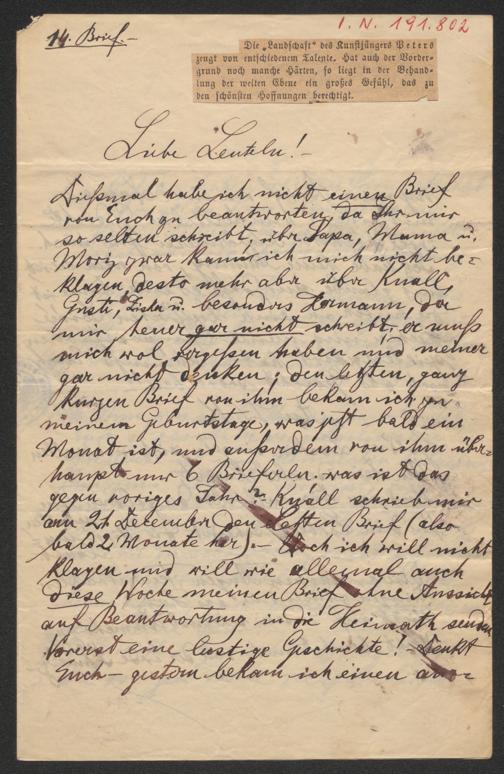 I. N. 191.802
14. Brief.-
Die „Landschaft" des Kunstjüngers Peters
zeugt von entschiedenem Talente. Hat auch der Vorder-
grund noch manche Härten, so liegt in der Behand-
lung der weiten Ebene ein großes Gefühl, das zu
den schönsten Hoffnungen berechtigt.
Liebe Leuteln!-
Dießmal habe ich nicht einen Brief
von Euch zu beantworten, da Ihr mir
so selten schreibt, über Papa, Mama u.
Moriz zwar kann ich mich nicht be=
klagen, desto mehr aber über Knall,
Gusti, Liska u. besonders Hermann, der
mir heuer gar nicht schreibt, er muß
mich wol vergeßen haben und meiner
gar nicht denken; den letzten, ganz
kurzen Brief von ihm bekam ich zu
meinem Geburtstage, was jetzt bald ein
Monat ist, und außerdem von ihm über=
haupt nur 6 Brieferln. was ist das
gegen voriges Jahr? Knall schrieb mir
am 21. Dezember den letzten Brief (also
bald 2 Monate her).- Doch ich will nicht
klagen und will wie allemal auch
diese Woche meinen Brief ohne Aussicht
auf Beantwortung in die Heimath senden
Vorerst eine lustige Geschichte! Denkt
Euch - gestern bekam ich einen